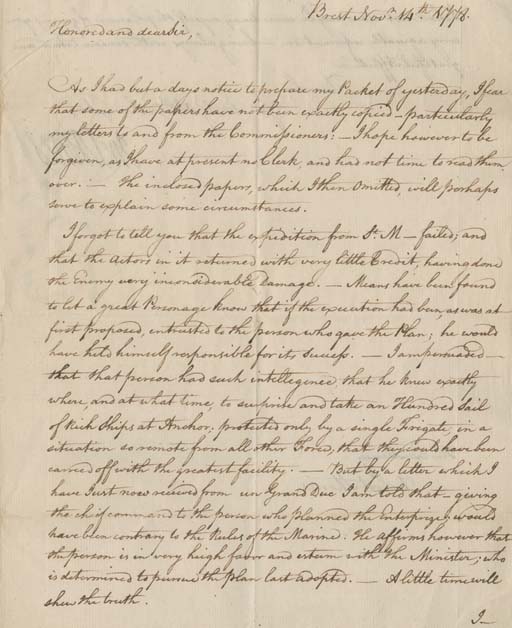 Brest Novr. 14th. 1778.
Honored and dear Sir,
As I had but a days notice to prepare my Packet of yesterday, I fear
that some of the papers have not been exactly copied – particularly
my letters to and from the Commissioners: – I hope however to be
forgiven, as I have at present no Clerk, and had not time to read them
over. – The inclosed papers, which I then omitted, will perhaps
serve to explain some circumstances.
I forgot to tell you that the expedition from St. M – failed; and
that the Actors in it returned with very little Credit, having done
the Enemy very inconsiderable Damage. – Means have been found
to let a great Personage know that if the execution had been, as was at
first proposed, entrusted to the person who gave the Plan; he would
have held himself responsible for its, success. – I am persuaded –
that that person had such intellegence that he knew exactly
where, and at what time, to surprise and take an Hundred Sail
of Rich Ships at Anchor, protected only by a single Frigate, in a
situation so remote from all other Force, that they could have been
carried off with the greatest facility. – But by a letter which I
have Just now received from un Grand Duc I am told that – giving
the chief command to the person who planned the Enterprize, would
have been contrary to the Rules of the Marine. He affirms however that
the person is in very high favor and esteem with the Minister; who
is determined to pursue the plan last adopted. – A little time will
shew the truth.
I –